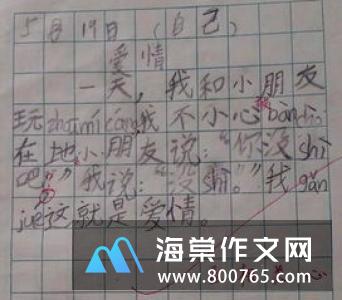 5月19日（自己）
爱情
一天，我和小朋友
玩zhuōmícáng,我不小心bàn心
在地小朋友说：“你没shì
吧。”我说：“没shì。”我gǎn
jué这就是爱情。
海棠作文网
www.800765.com